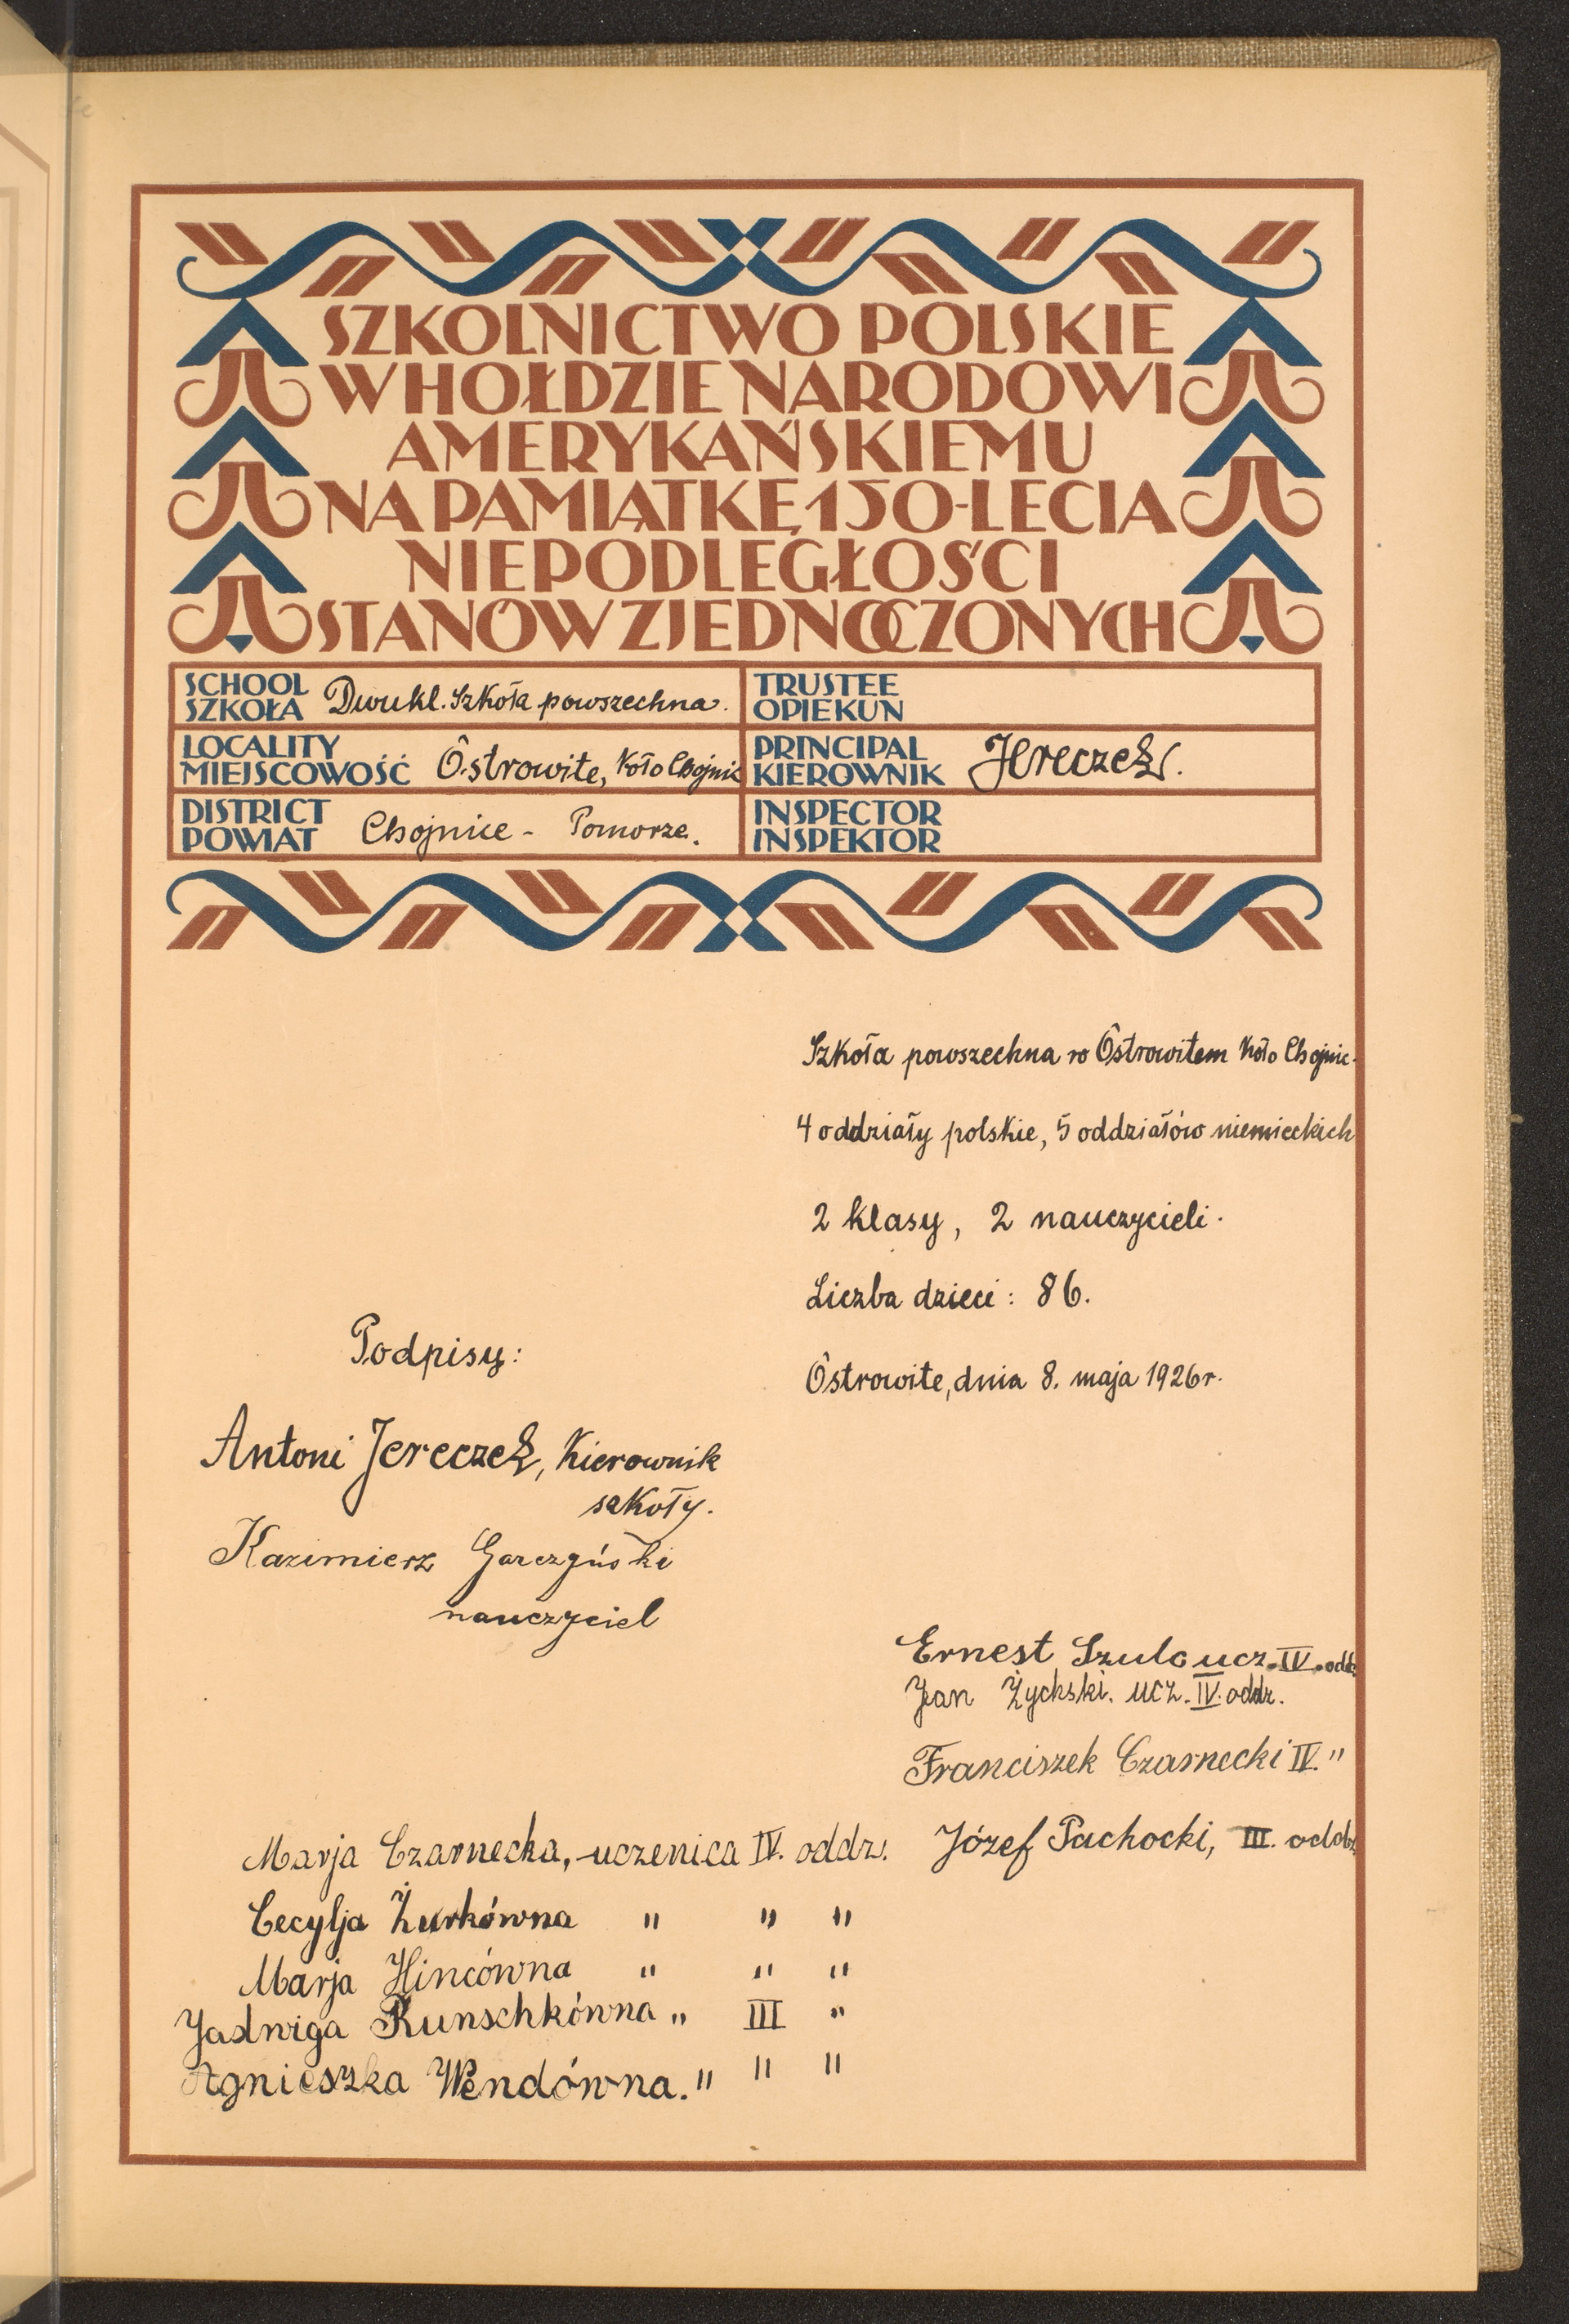 SZKOLNICTWO POLSKIE
W HOŁDZIE NARODOWI
AMERYKAŃSKIEMU
NA PAMIĄTKĘ 150-LECIA
NIEPODLEGŁOŚCI
STANÓW ZJEDNOCZONYCH
SCHOOL
SZKOŁA Dwukl. Szkoła powszechna.
TRUSTEE
OPIEKUN
LOCALITY
MIEJSCOWOŚĆ Ostrowite, koło Chojnic
PRINCIPAL
KIEROWNIK Jereczek.
DISTRICT
POWIAT Chojnice - Pomorze.
INSPECTOR
INSPEKTOR
Szkoła powszechna w Ostrowitem koło Chojnic.
4 oddziały polskie, 5 oddziałów niemieckich
2 klasy, 2 nauczycieli.
Liczba dzieci: 86.
Ostrowite, dnia 8. maja 1926 r.
Podpisy:
Antoni Jereczek, Kierownik
szkoły.
Kazimierz Garczyński
nauczyciel
Ernest Szulc ucz. IV. odd.
Jan Żychski. ucz. IV. oddz.
Franciszek Czarnecki IV. "
Józef Pachocki, III. oddz.
Marja Czarnecka, uczenica IV. oddz.
Cecylja Żurkówna " " "
Marja Hincówna " " "
Jadwiga Runschkówna " III "
Agnieszka Wendówna. " " "